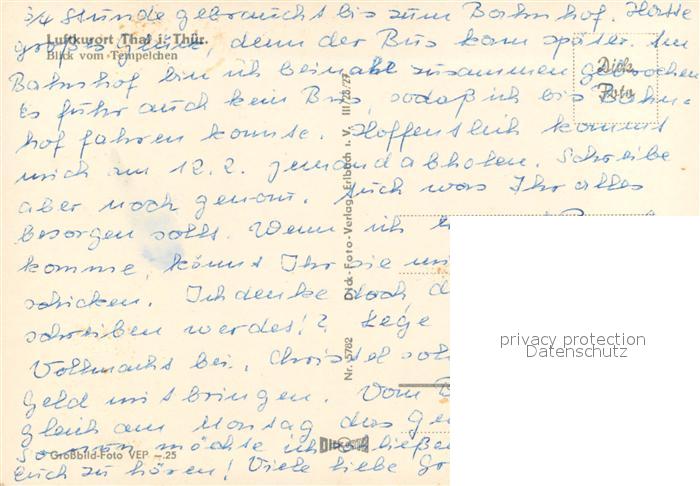 3/4 Stunde gebraucht bis zum Bahnhof. Hatte
großes Glück, denn der Bus kam später. Am
Luftkurort Thal i. Thür.
Blick vom Tempelchen
Bahnhof bin ich beinahe zusammen gebrochen
Es fuhr auch kein Bus, sodaß ich bis Bahn-
hof fahren konnte. Hoffentlich kommt
mich am 12.2. jemand abholen. Schreibe
aber noch genau. Auch was Ihr alles
besorgen sollt. Wenn ich
komme, könnt Ihr sie
schicken. Ich denke doch,
schreiben werdet!? Lege
Vollmacht bei. Christel
Geld mitbringen. Vom
gleich am Montag das
Somit möchte ich schließen
Euch zu hören! Viele liebe
Dick
Foto
Nr. 5782 Dick-Foto-Verlag, Erlbach i. V.
Großbild-Foto VEP -.25
privacy protection
Datenschutz